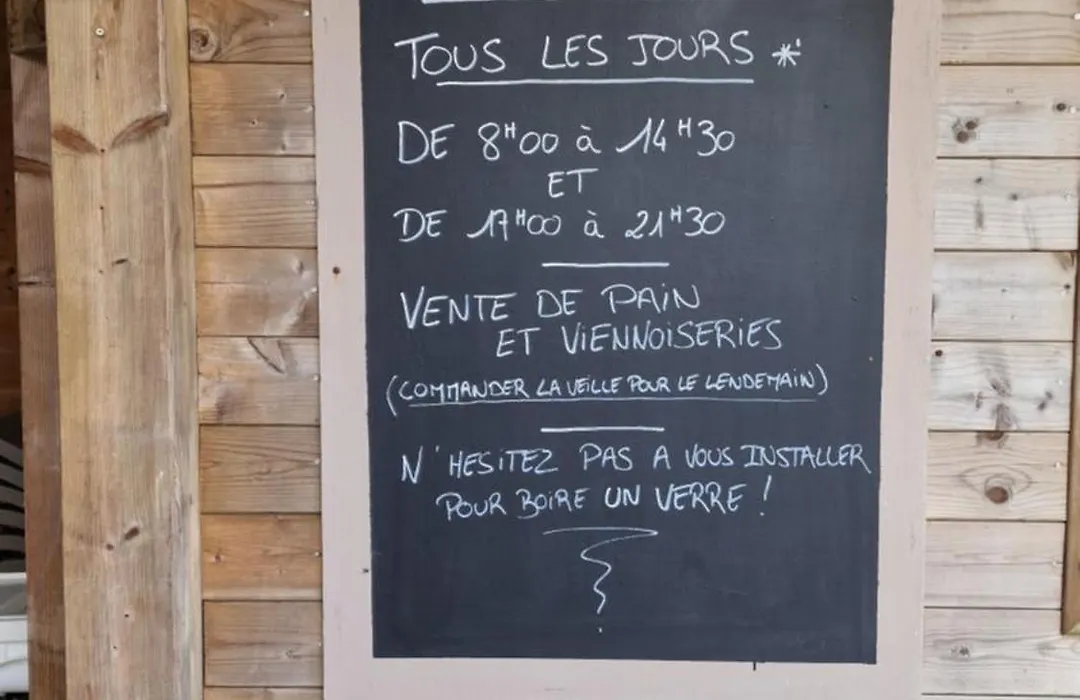 TOUS LES JOURS *
DE 8H00 à 14H30
ET
DE 17H00 à 21H30
VENTE DE PAIN
ET VIENNOISERIES
(COMMANDER LA VEILLE POUR LE LENDEMAIN)
N'HESITEZ PAS A VOUS INSTALLER
POUR BOIRE UN VERRE !